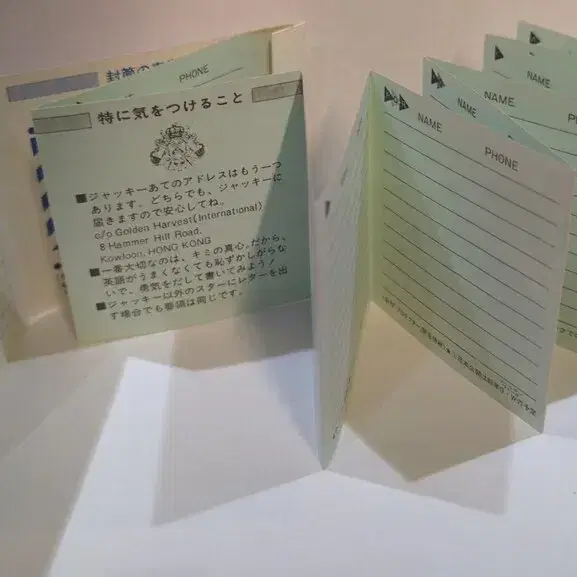 封筒の
PHONE
特に気をつけること
■ジャッキーあてのアドレスはもう一つ
あります。どちらでも、ジャッキーに
届きますので安心してね。
c/o Golden Harvest(International)
8 Hammer Hill Road,
Kowloon, HONG KONG
■一番大切なのは、キミの真心。だから、
英語がうまくなくても恥ずかしがらな
いで、勇気をだして書いてみよう!
■ジャッキー以外のスターにレターを出
す場合でも要領は同じです。
NAME PHONE
NAME
NAME
NAME